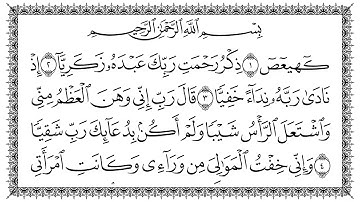 بِسْمِ اللَّهِ الرَّحْمَٰنِ الرَّحِيمِ
كٓهيعٓصٓ ١ ذِكْرُ رَحْمَتِ رَبِّكَ عَبْدَهُۥ زَكَرِيَّآ ٢ إِذْ
نَادَىٰ رَبَّهُۥ نِدَآءً خَفِيًّا ٣ قَالَ رَبِّ إِنِّى وَهَنَ ٱلْعَظْمُ مِنِّى
وَٱشْتَعَلَ ٱلرَّأْسُ شَيْبًا وَلَمْ أَكُنۢ بِدُعَآئِكَ رَبِّ شَقِيًّا
٤ وَإِنِّى خِفْتُ ٱلْمَوَٰلِىَ مِن وَرَآءِى وَكَانَتِ ٱمْرَأَتِى